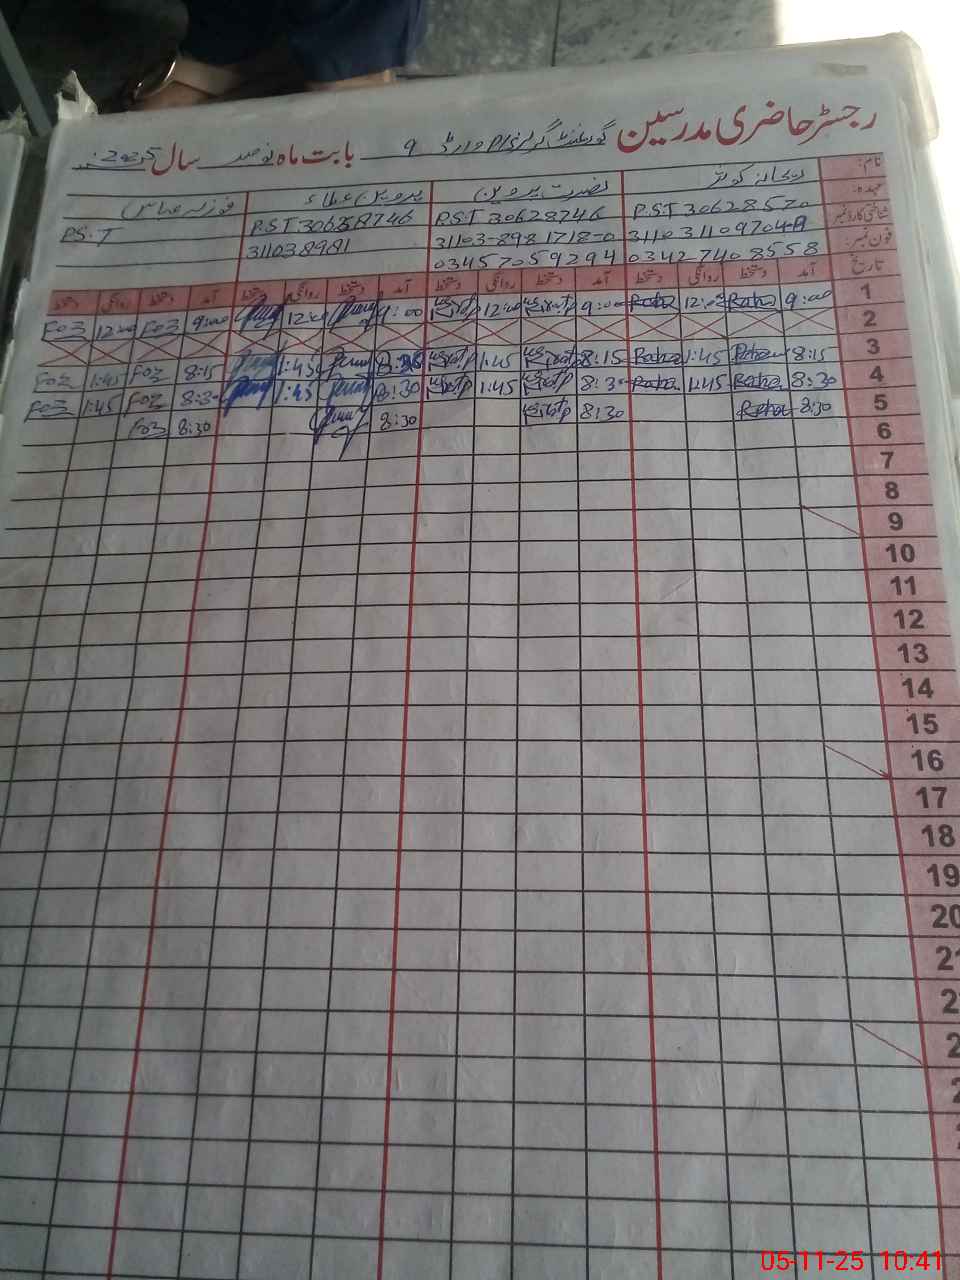 رجسٹر حاضری مدرسین گورنمنٹ گرلز وارڈ 9 بابت ماہ نومبر سال 2025
نام: ریحانہ کوثر نصرت پروین پروین عطاء فوزیہ عباس
عہدہ: P.S.T 30628520 P.S.T 30628746 P.S.T 30628746 P.S.T
شناختی کارڈ نمبر 31103-8981718-0 311038981
فون نمبر: 03427408558 03457059294
تاریخ آمد دستخط روانگی دستخط آمد دستخط روانگی دستخط آمد دستخط روانگی دستخط آمد دستخط روانگی دستخط
1 9:00 Reha 12:00 Reha 9:00 12:00 9:00 12:00 9:00 Foz 12:00 Foz
2
3 8:15 Reha 1:45 Reha 8:15 1:45 1:45 8:15 Foz 1:45 Foz
4 8:30 Reha 1:45 Reha 8:30 1:45 8:30 1:45 8:30 Foz 1:45 Foz
5 8:30 Reha 8:30 8:30 8:30 Foz
6
7
8
9
10
11
12
13
14
15
16
17
18
19
20
05-11-25 10:41